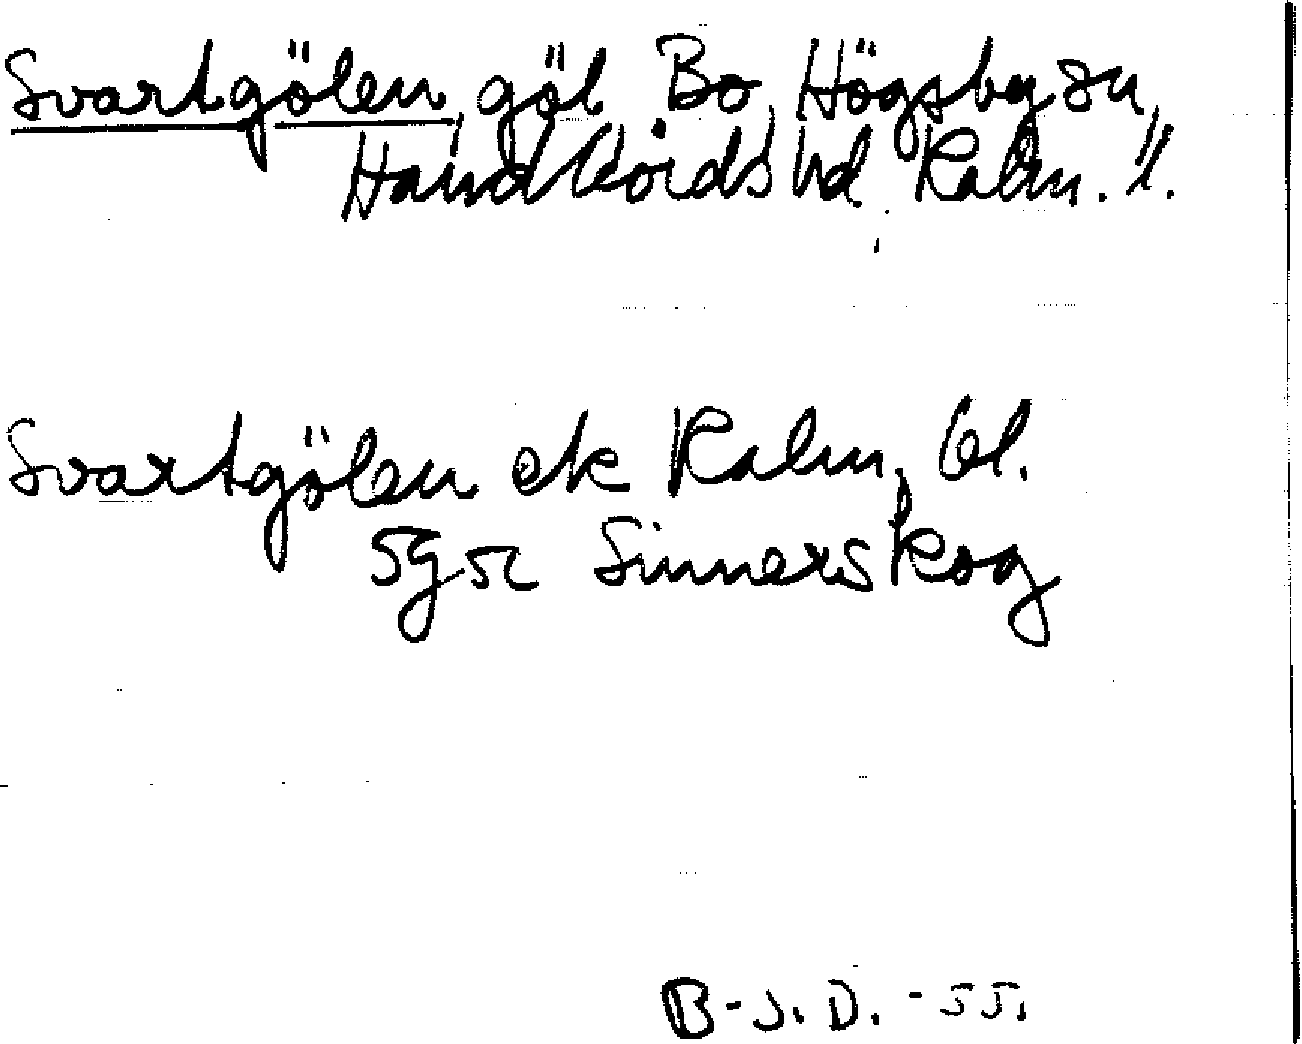 Svartgölen, göl Bo, Högsby sn,
Handbörds hd Kalm. l.
Svartgölen ek Kalm. bl.
5g5c Sinnerskog
B-J.D. -55.